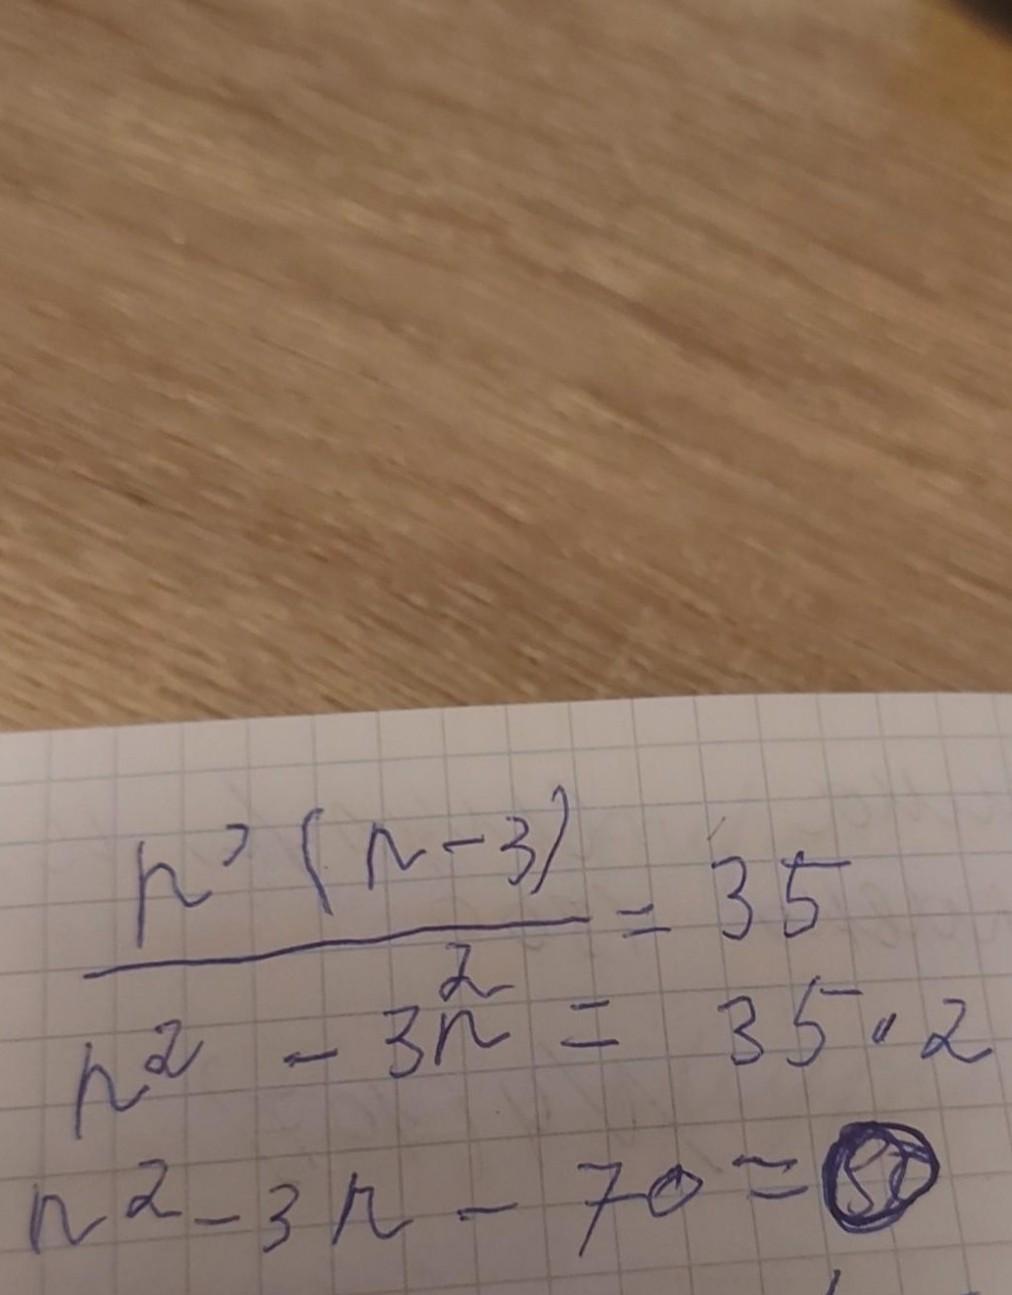 n · (n-3)
―――― = 35
2
n² - 3n = 35 · 2
n² - 3n - 70 = 0